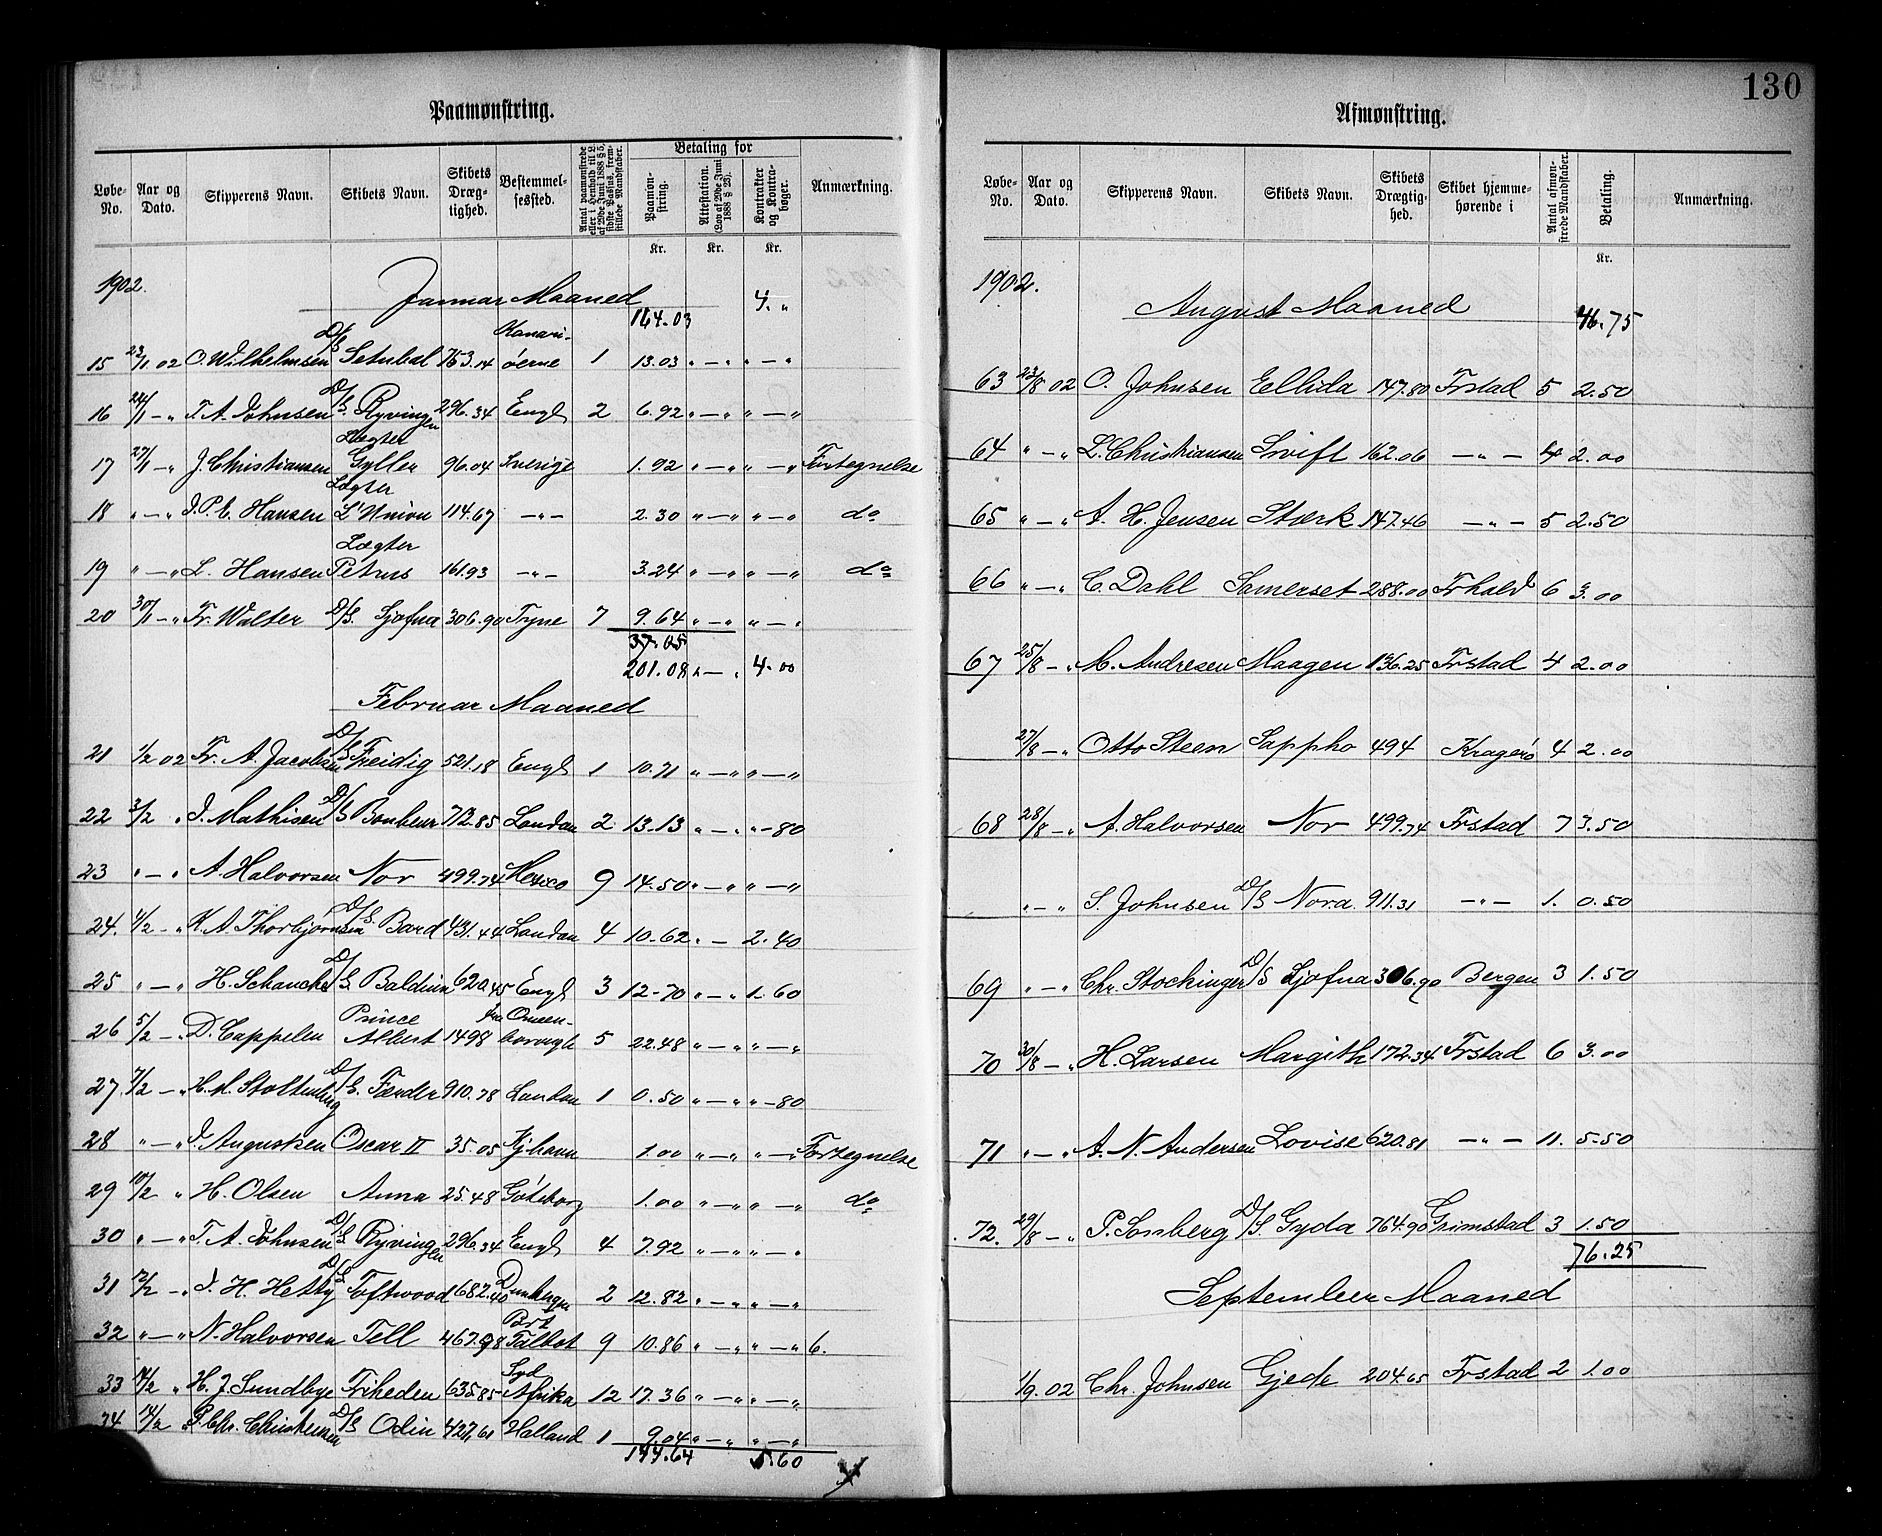 130
Paamønstring.
Løbe-No. | Aar og Dato. | Skipperens Navn. | Skibets Navn. | Skibets Dræg-tighed. | Bestemmel-sessted. | Antal paamønstrede eller i Henhold til L. af 29de Juni 1888 § 5, sidste Passus, frem-stillede Mandskaber. | Betaling for | Paamøn-string. | Attestation. (Lov af 29de Juni 1888 § 23). | Kontrakter og Kontra-bøger. | Anmærkning.
Kr. | Kr. | Kr.
1902. Januar Maaned 164.03 4. "
15 23/1 02 O. Wilhelmsen D/S Setubal 753.14 Kanari-øerne 1 13.03 " — " " — "
16 24/1 — " T. A. Johnsen D/S. Ryvingen 296.34 Engl 2 6.92 " — " " — "
17 27/1 — " J. Christiansen Lægter Gyller 96.04 Sverige 1.92 " — " " — " Fortegnelse
18 " — " J. P. C. Hansen Lægter L'Union 114.67 — " — 2.30 " — " " — " do
19 " — " L. Hansen Lægter Petrus 161.93 — " — 3.24 " — " " — " do
20 30/1 — " Fr. Walter D/S. Sjofna 306.90 Tyne 7 9.64 " — " " — "
37.05
201.08 " — " 4.00
Februar Maaned
21 1/2 02 Fr. A. Jacobsen D/S Freidig 521.18 Engl 1 10.71 " — " " — "
22 3/2 " J. Mathisen D/S Bonheur 712.85 London 2 13.13 " — " " - 80
23 " — " A. Halvorsen Nor 499.74 Mexico 9 14.50 " — " " — "
24. 4/2 — " K. A. Thorbjørnsen D/S. Bard 431.44 London 4 10.62 " — 2.40
25 " — " H. Schanche D/S. Baldur 620.45 Engl 3 12.70 " — " 1.60
26 5/2 — " D. Cappelen Prince Albert 1498 5 22.48 " — " " — "
27. 7/2 — " H. M. Stoltenberg D/S. Færder 910.78 London 1 0.50 " — " " - 80
28 " — " J. Augustsen Oscar II 35.05 Kj.havn 1.00 " — " " — " Fortegnelse
29 10/2 " H. Olsen Anna 25.48 Göteborg 1.00 " — " " — " do
30 " — " T. A. Johnsen D/S. Ryvingen 296.34 Engl 4 7.92 " — " " — "
31 12/2 — " J. H. Hetty D/S. Toftwood 682.40 2 12.82 " — " " — "
32 " — " N. Halvorsen Tell 467.98 Port Talbot 9 10.86 " — " " — " 6.
33 14/2 " H. J. Sundbye Friheden 635.85 Syd Afrika 12 17.36 " — " " — "
34 14/2 " P. Chr. Christensen D/S Odin 427.61 Holland 1 9.04 " — " " — "
144.64 5.60
Afmønstring.
Løbe-No. | Aar og Dato. | Skipperens Navn. | Skibets Navn. | Skibets Drægtig-hed. | Skibet hjemme-hørende i | Antal afmøn-strede Mandskaber. | Betaling. | Anmærkning.
Kr.
1902. August Maaned 46.75
63 23/8 02 O. Johnsen Ellida 147.80 Frstad 5 2.50
64 " — " L. Christiansen Swift 162.06 — " — 4 2.00
65 " — " A. H. Jensen Stærk 147.46 — " — 5 2.50
66 " — " C. Dahl Somerset 288.00 Frhald 6 3.00
67 25/8 — " M. Andresen Maagen 136.25 Frstad 4 2.00
27/8 — " Otto Steen Sappho 494 Kragerö 4 2.00
68 28/8 — " A. Halvorsen Nor 499.74 Frstad 7 3.50
" — " S. Johnsen D/S Nora. 911.31 — " — 1. 0.50
69 " — " Chr. Stockinger D/S Sjofna 306.90 Bergen 3 1.50
70 30/8 — " H. Larsen Margith 172.34 Frstad 6 3.00
71 " — " A. N. Andersen Lovise 620.81 — " — 11. 5.50
72. 29/8 — " P. Somberg D/S. Gyda 764.90 Grimstad 3 1.50
76.25
September Maaned
1/9. 02 Chr. Johnsen Gjede 204.65 Frstad 2 1.00